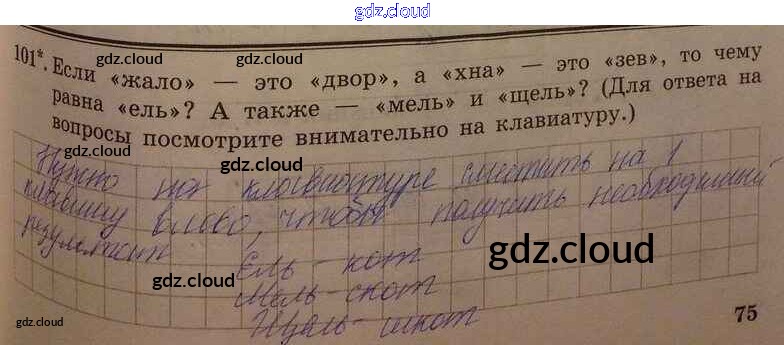 gdz.cloud
101*. Если «жало» — это «двор», а «хна» — это «зев», то чему
gdz.cloud gdz.cloud
равна «ель»? А также — «мель» и «щель»? (Для ответа на
вопросы посмотрите внимательно на клавиатуру.)
gdz.cloud
Нужно на клавиатуре сместить на 1
gdz.cloud
клавишу влево, чтобы получить необходимый
результат
Ель - кот
gdz.cloud
gdz.cloud
Мель - скот
Щель - шкот
gdz.cloud
75